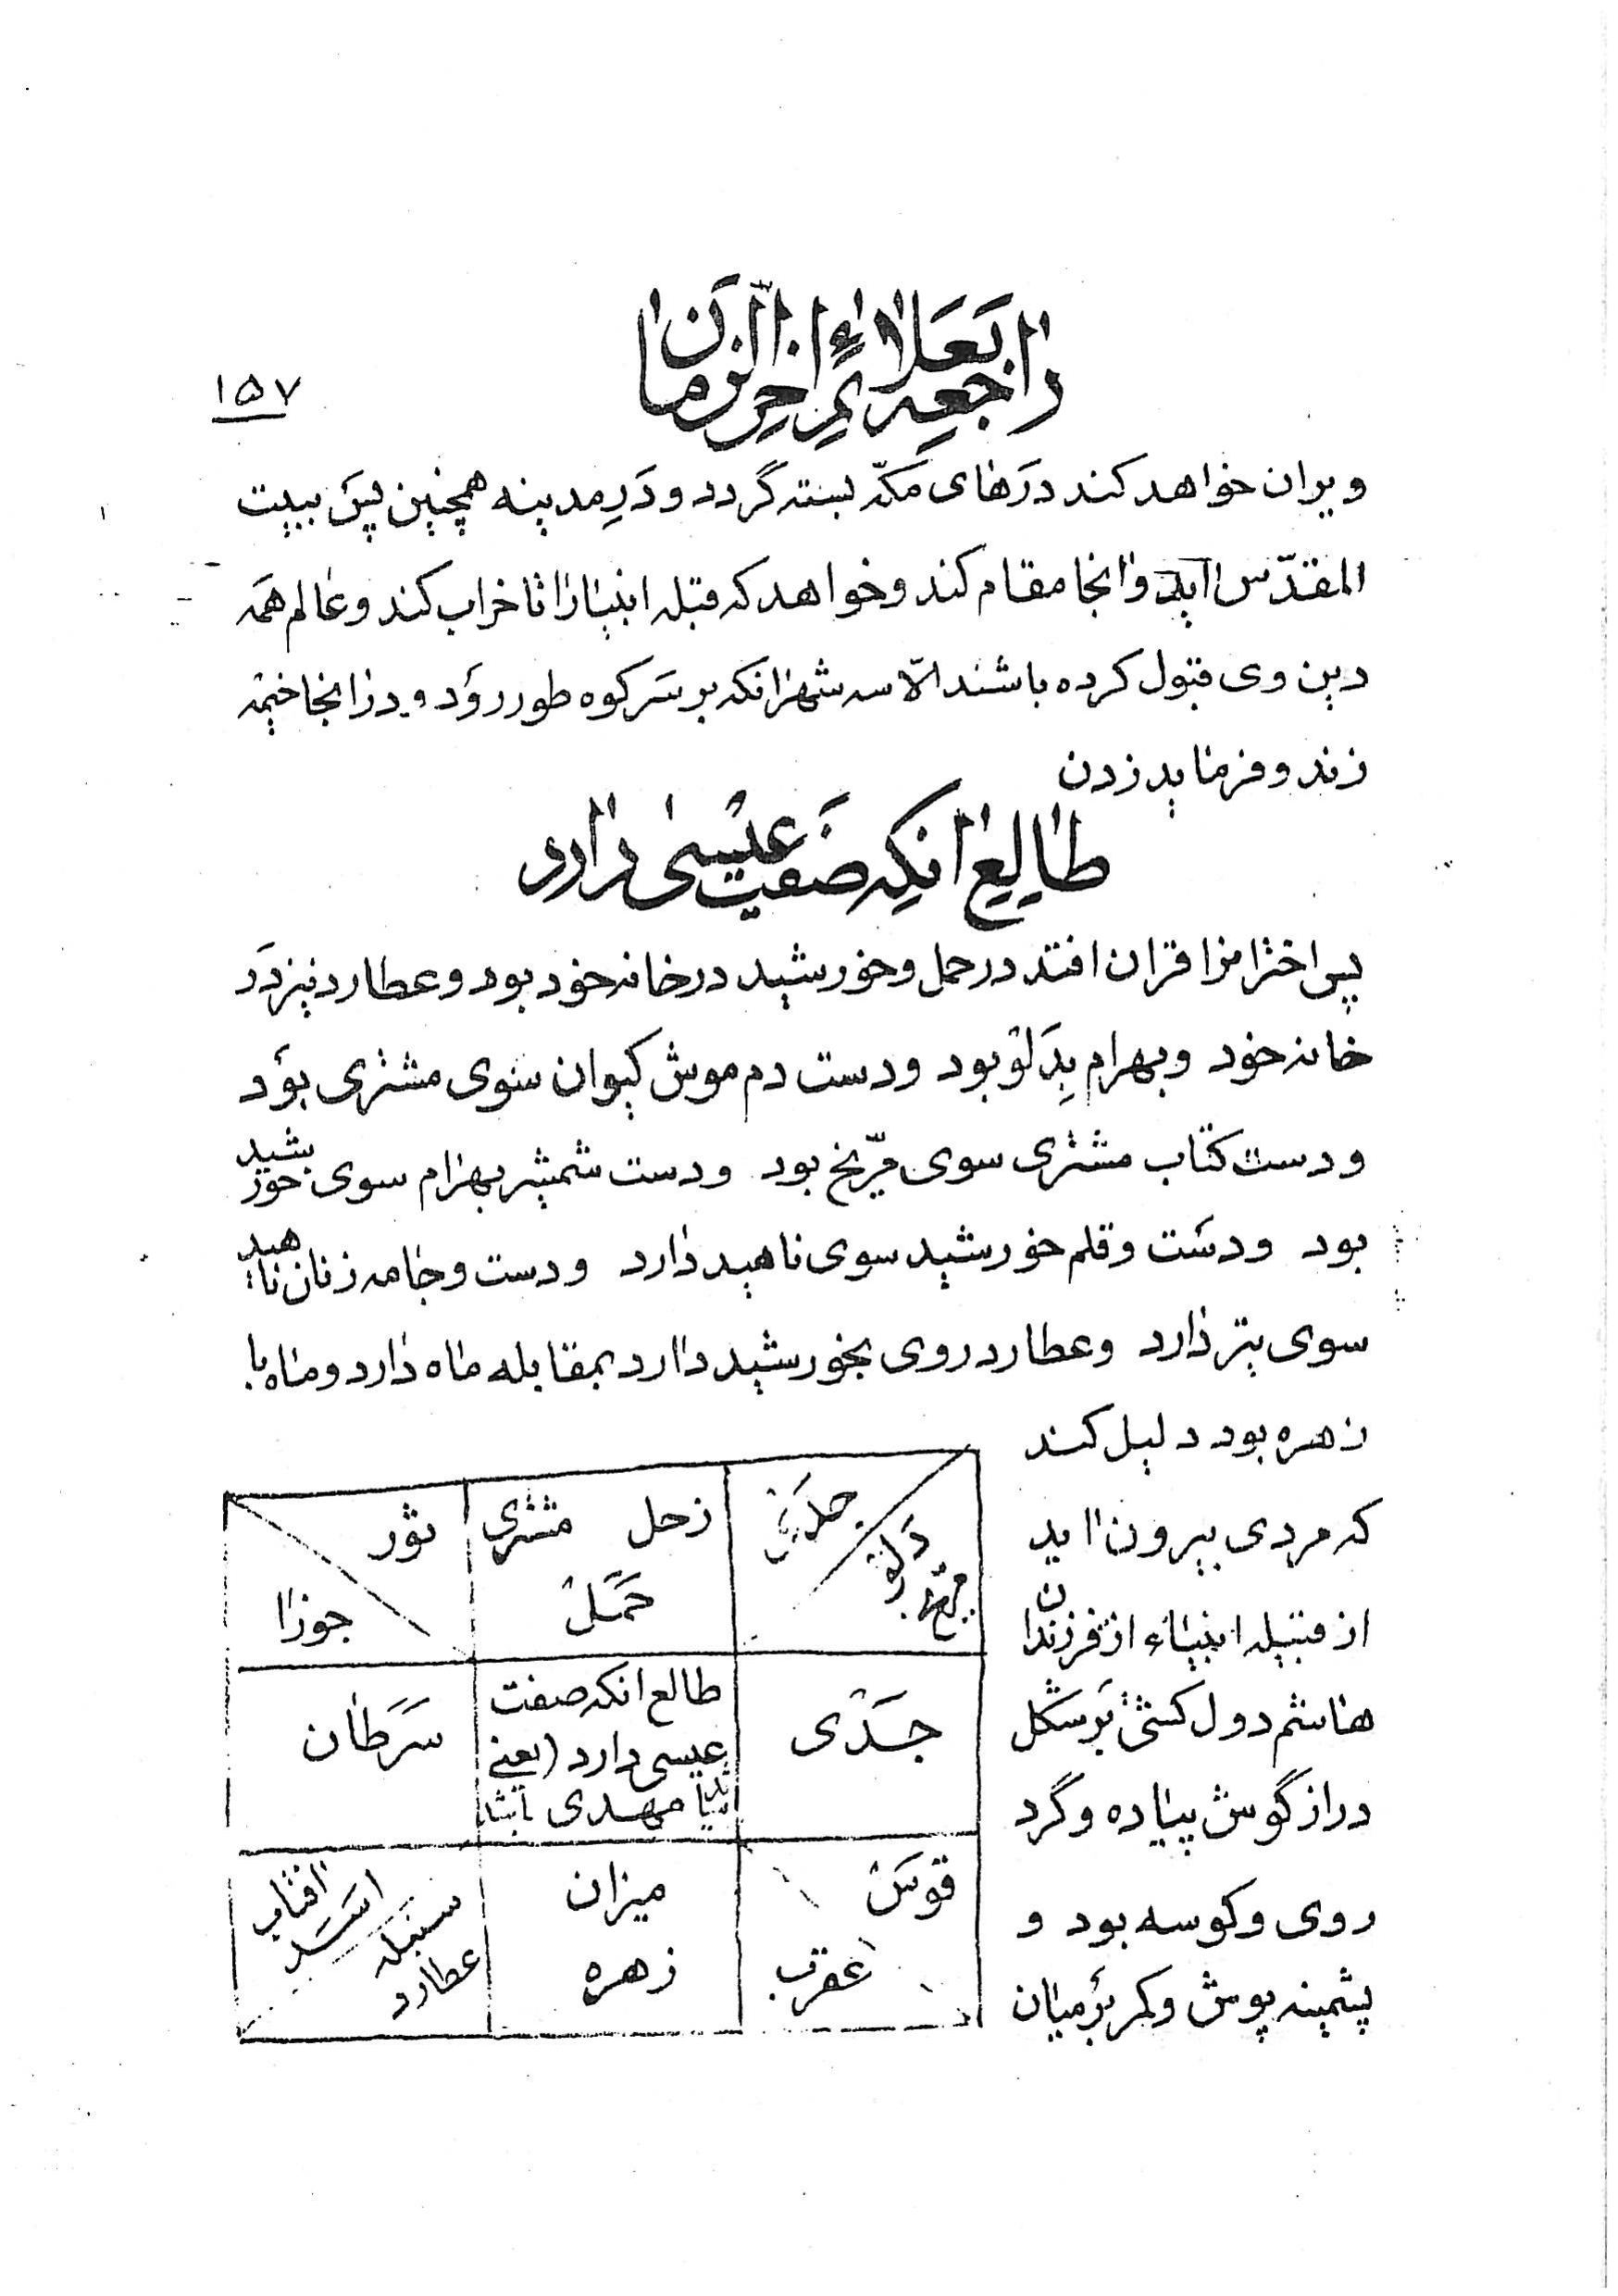 راجعه بعلائم اخرالزمان
۱۵۷
ویران خواهد کند درهای مکّه بسته گردد و دَرِ مدینه همچنین پس ببیت
المقدّس اید وانجا مقام کند و خواهد که قبله انبیا را نا خراب کند و عالم همه
دین وی قبول کرده باشند الّا سه شهر انکه بر سر کوه طور رود و در انجا خیمه
زند و فرماید زدن
طالِعِ انکِه صفَت عیسی دارد
پس اخترا مرا قران افتد در حمل و خورشید در خانه خود بود و عطارد نیز در
خانه خود وبهرام بِدَلو بود ودست دم موش کیوان سوی مشتری بود
ودست کتاب مشتری سوی مرّیخ بود ودست شمشیر بهرام سوی خورشید
بود ودست وقلم خورشید سوی ناهید دارد ودست وجامه زنان ناهید
سوی تیر دارد وعطارد روی بخورشید دارد بمقابله ماه دارد وماه با
زهره بود دلیل کند
که مردی بیرون اید
از قبیله انبیاء از فرزندان
هاشم دول کشیْ بر شکل
دراز گوش پیاده وگرد
روی وکوسه بود و
پشمینه پوش وکمر بر میان
دلو
مریخ
زحل مشتری
حَمَل
ثور
جوزا
جَدْی
طالع انکه صفت
عیسی دارد (یعنی
مهدی باشد
سَرَطان
قوس
عقرب
میزان
زهره
سنبله
عطارد
اسد
افتاب